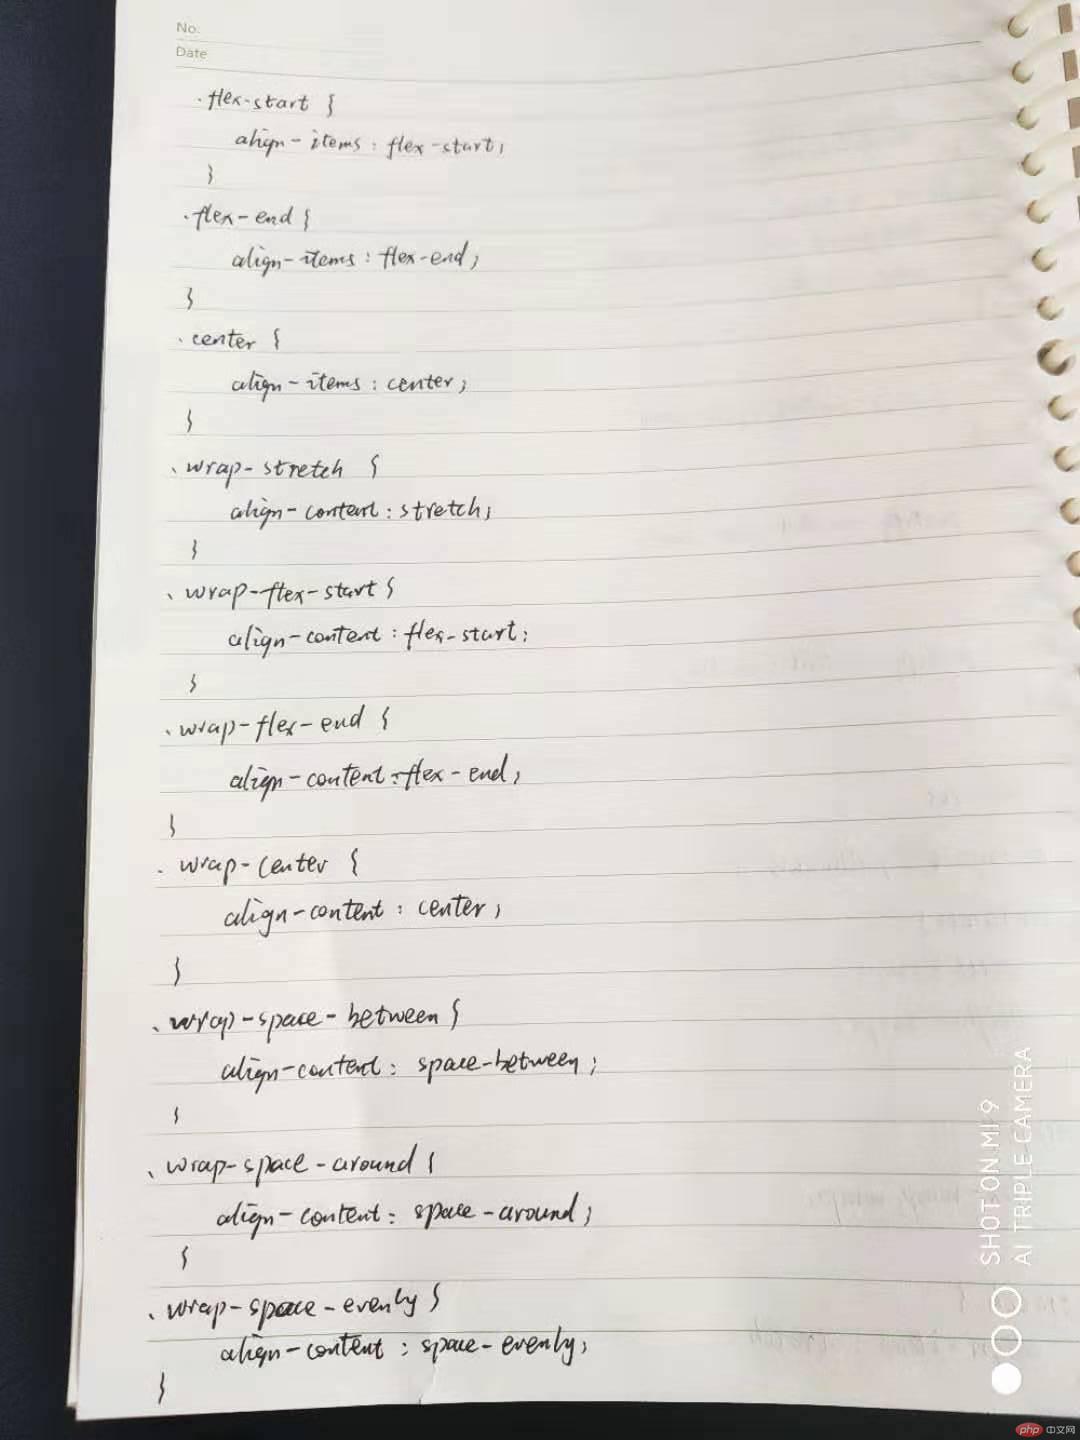 No.
Date
.flex-start {
align-items: flex-start;
}
.flex-end {
align-items: flex-end;
}
.center {
align-items: center;
}
.wrap-stretch {
align-content: stretch;
}
.wrap-flex-start {
align-content: flex-start;
}
.wrap-flex-end {
align-content: flex-end;
}
.wrap-center {
align-content: center;
}
.wrap-space-between {
align-content: space-between;
}
.wrap-space-around {
align-content: space-around;
}
.wrap-space-evenly {
align-content: space-evenly;
}
SHOT ON MI 9
AI TRIPLE CAMERA
php 中文网